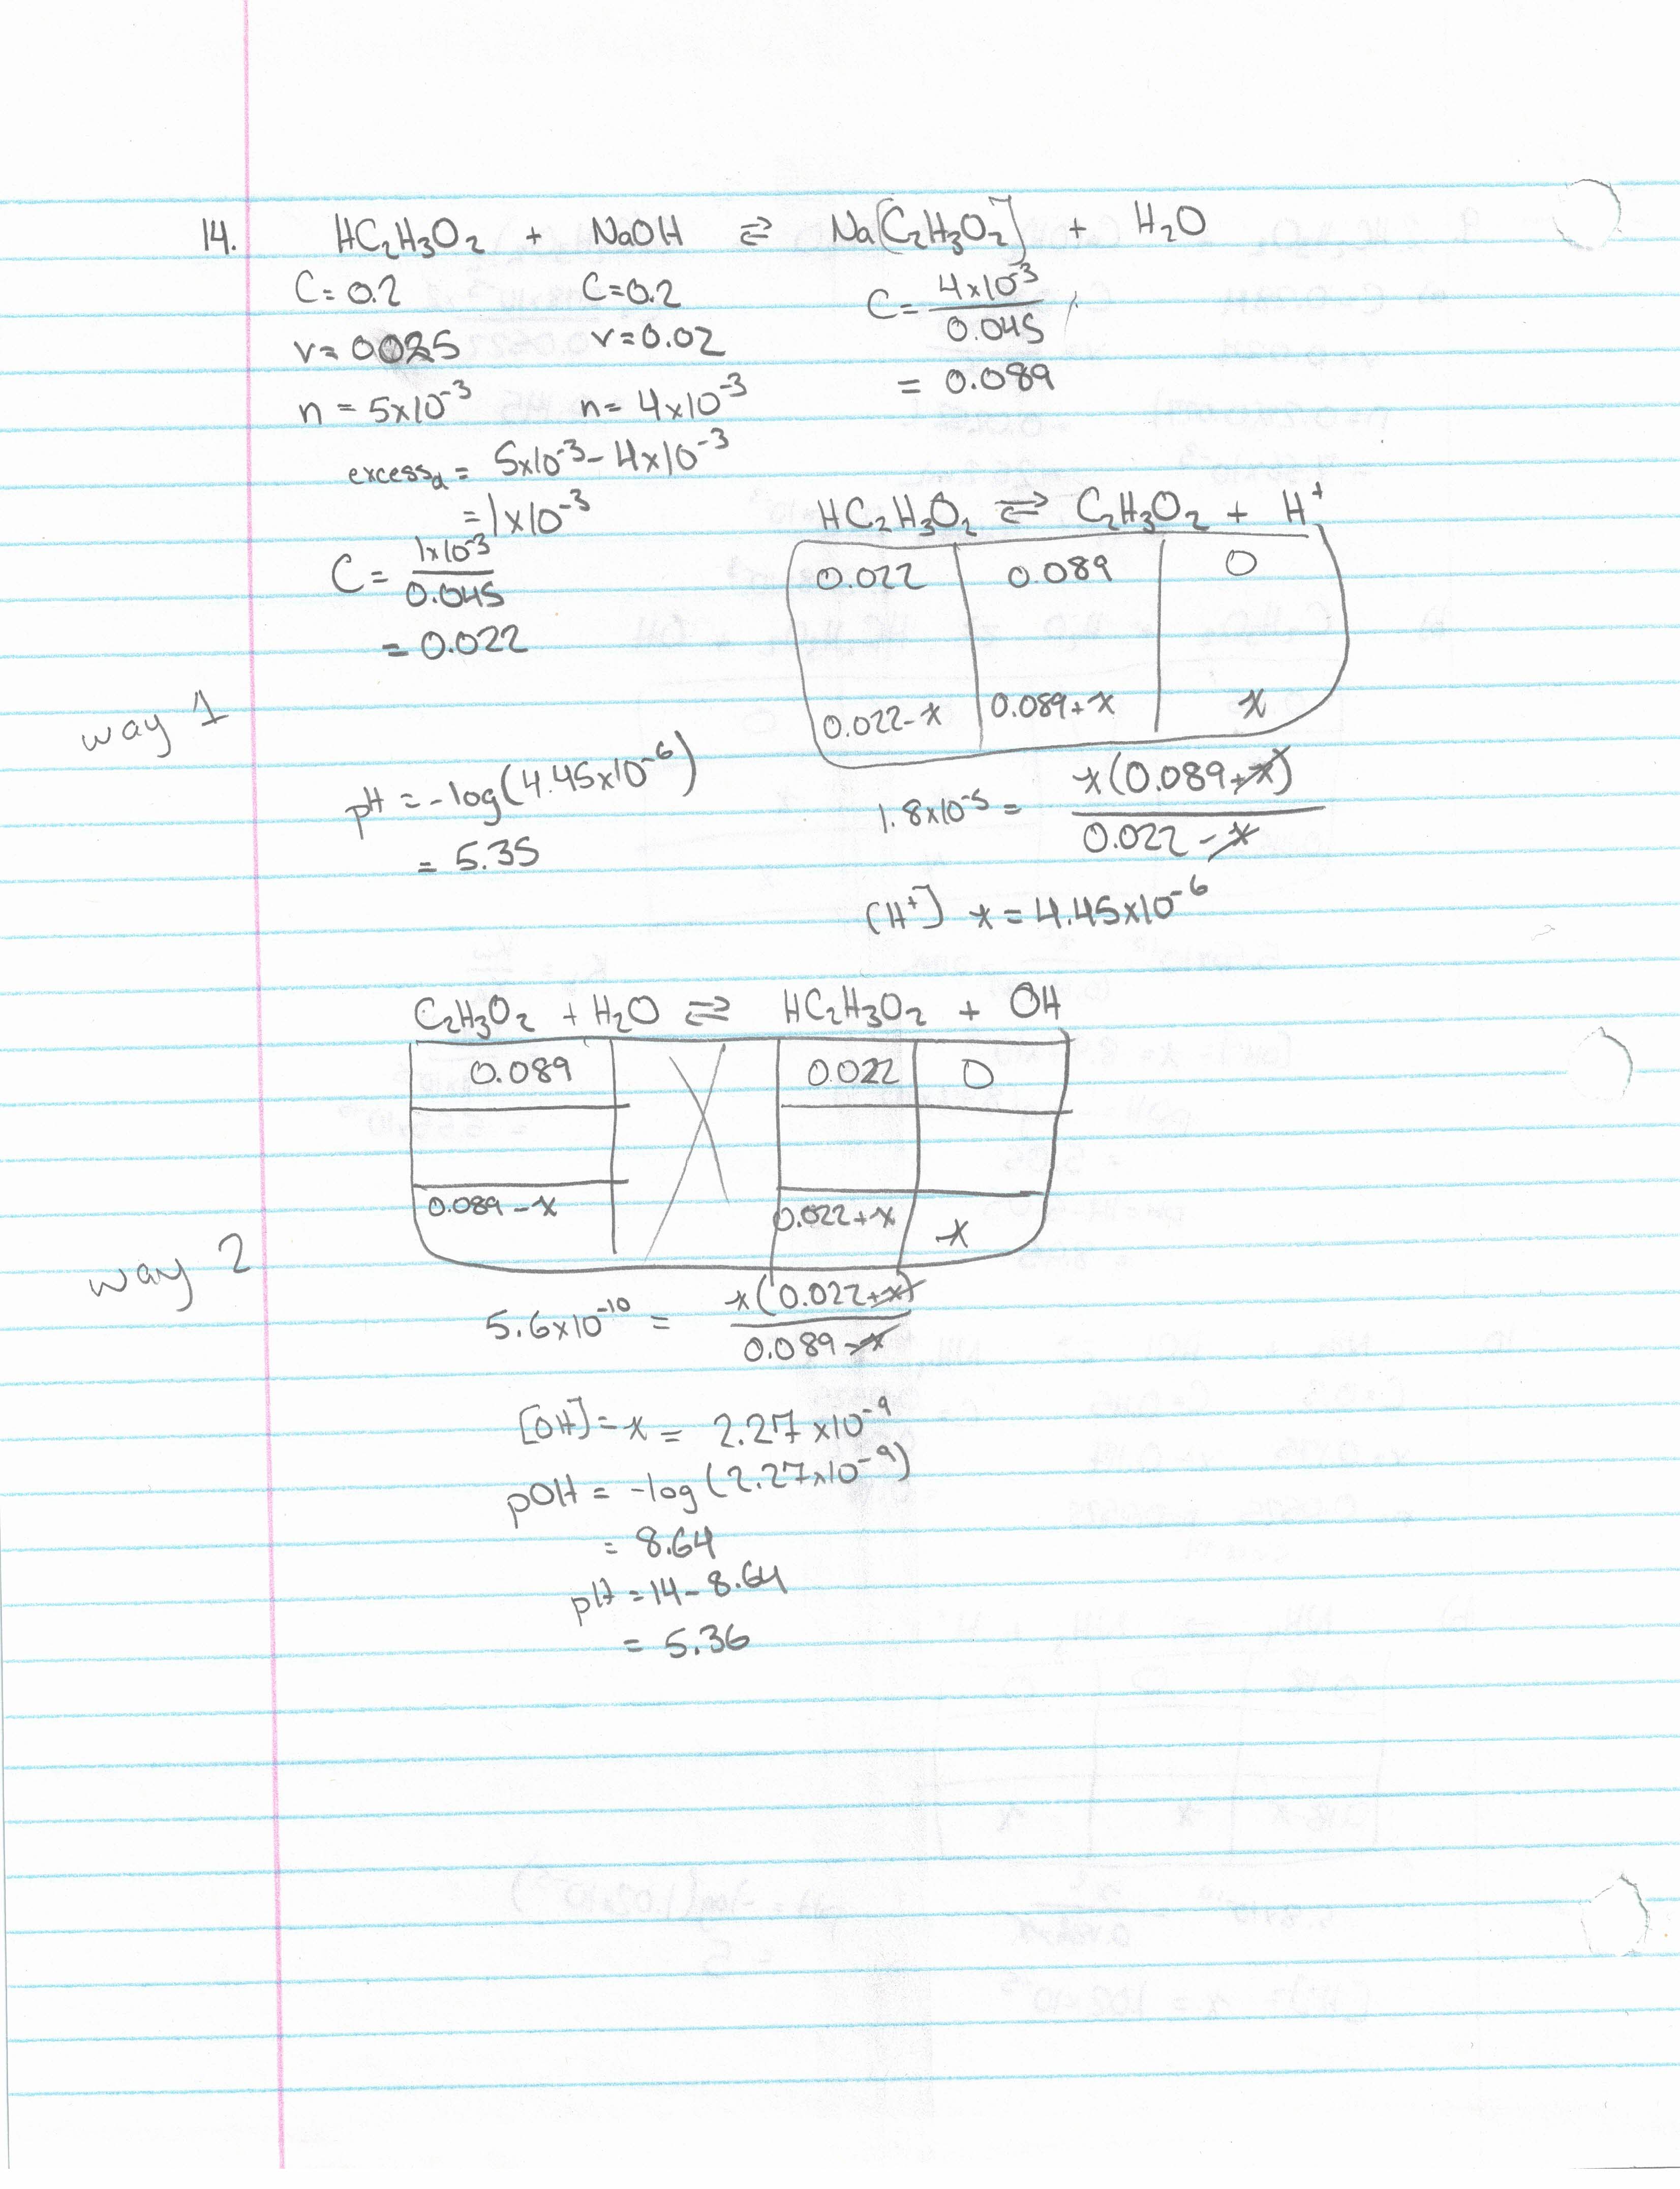 14. HC₂H₃O₂ + NaOH ⇌ Na[C₂H₃O₂] + H₂O
C=0.2 C=0.2 C= 4x10⁻³/0.045
v=0.025 v=0.02 = 0.089
n = 5x10⁻³ n= 4x10⁻³
excessₐ = 5x10⁻³-4x10⁻³
= 1x10⁻³
C= 1x10⁻³/0.045
= 0.022
HC₂H₃O₂ ⇌ C₂H₃O₂ + H⁺
0.022 0.089 0
0.022-x 0.089+x x
1.8x10⁻⁵ = x(0.089+x)/0.022-x
(H⁺] x=4.45x10⁻⁶
way 1
pH =-log(4.45x10⁻⁶)
= 5.35
C₂H₃O₂ + H₂O ⇌ HC₂H₃O₂ + OH
0.089 0.022 0
0.089-x 0.022+x x
way 2
5.6x10⁻¹⁰ = x(0.022+x)/0.089-x
[OH]=x= 2.27x10⁻⁹
pOH = -log(2.27x10⁻⁹)
= 8.64
pH =14-8.64
= 5.36